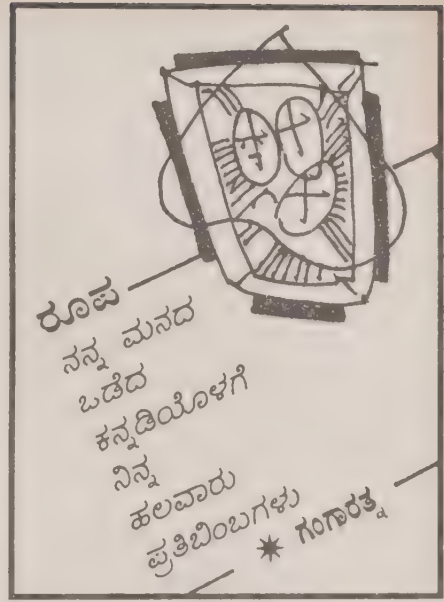 ರೂಪ
ನನ್ನ ಮನದ
ಒಡೆದ
ಕನ್ನಡಿಯೊಳಗೆ
ನಿನ್ನ
ಹಲವಾರು
ಪ್ರತಿಬಿಂಬಗಳು
* ಗಂಗಾರತ್ನ